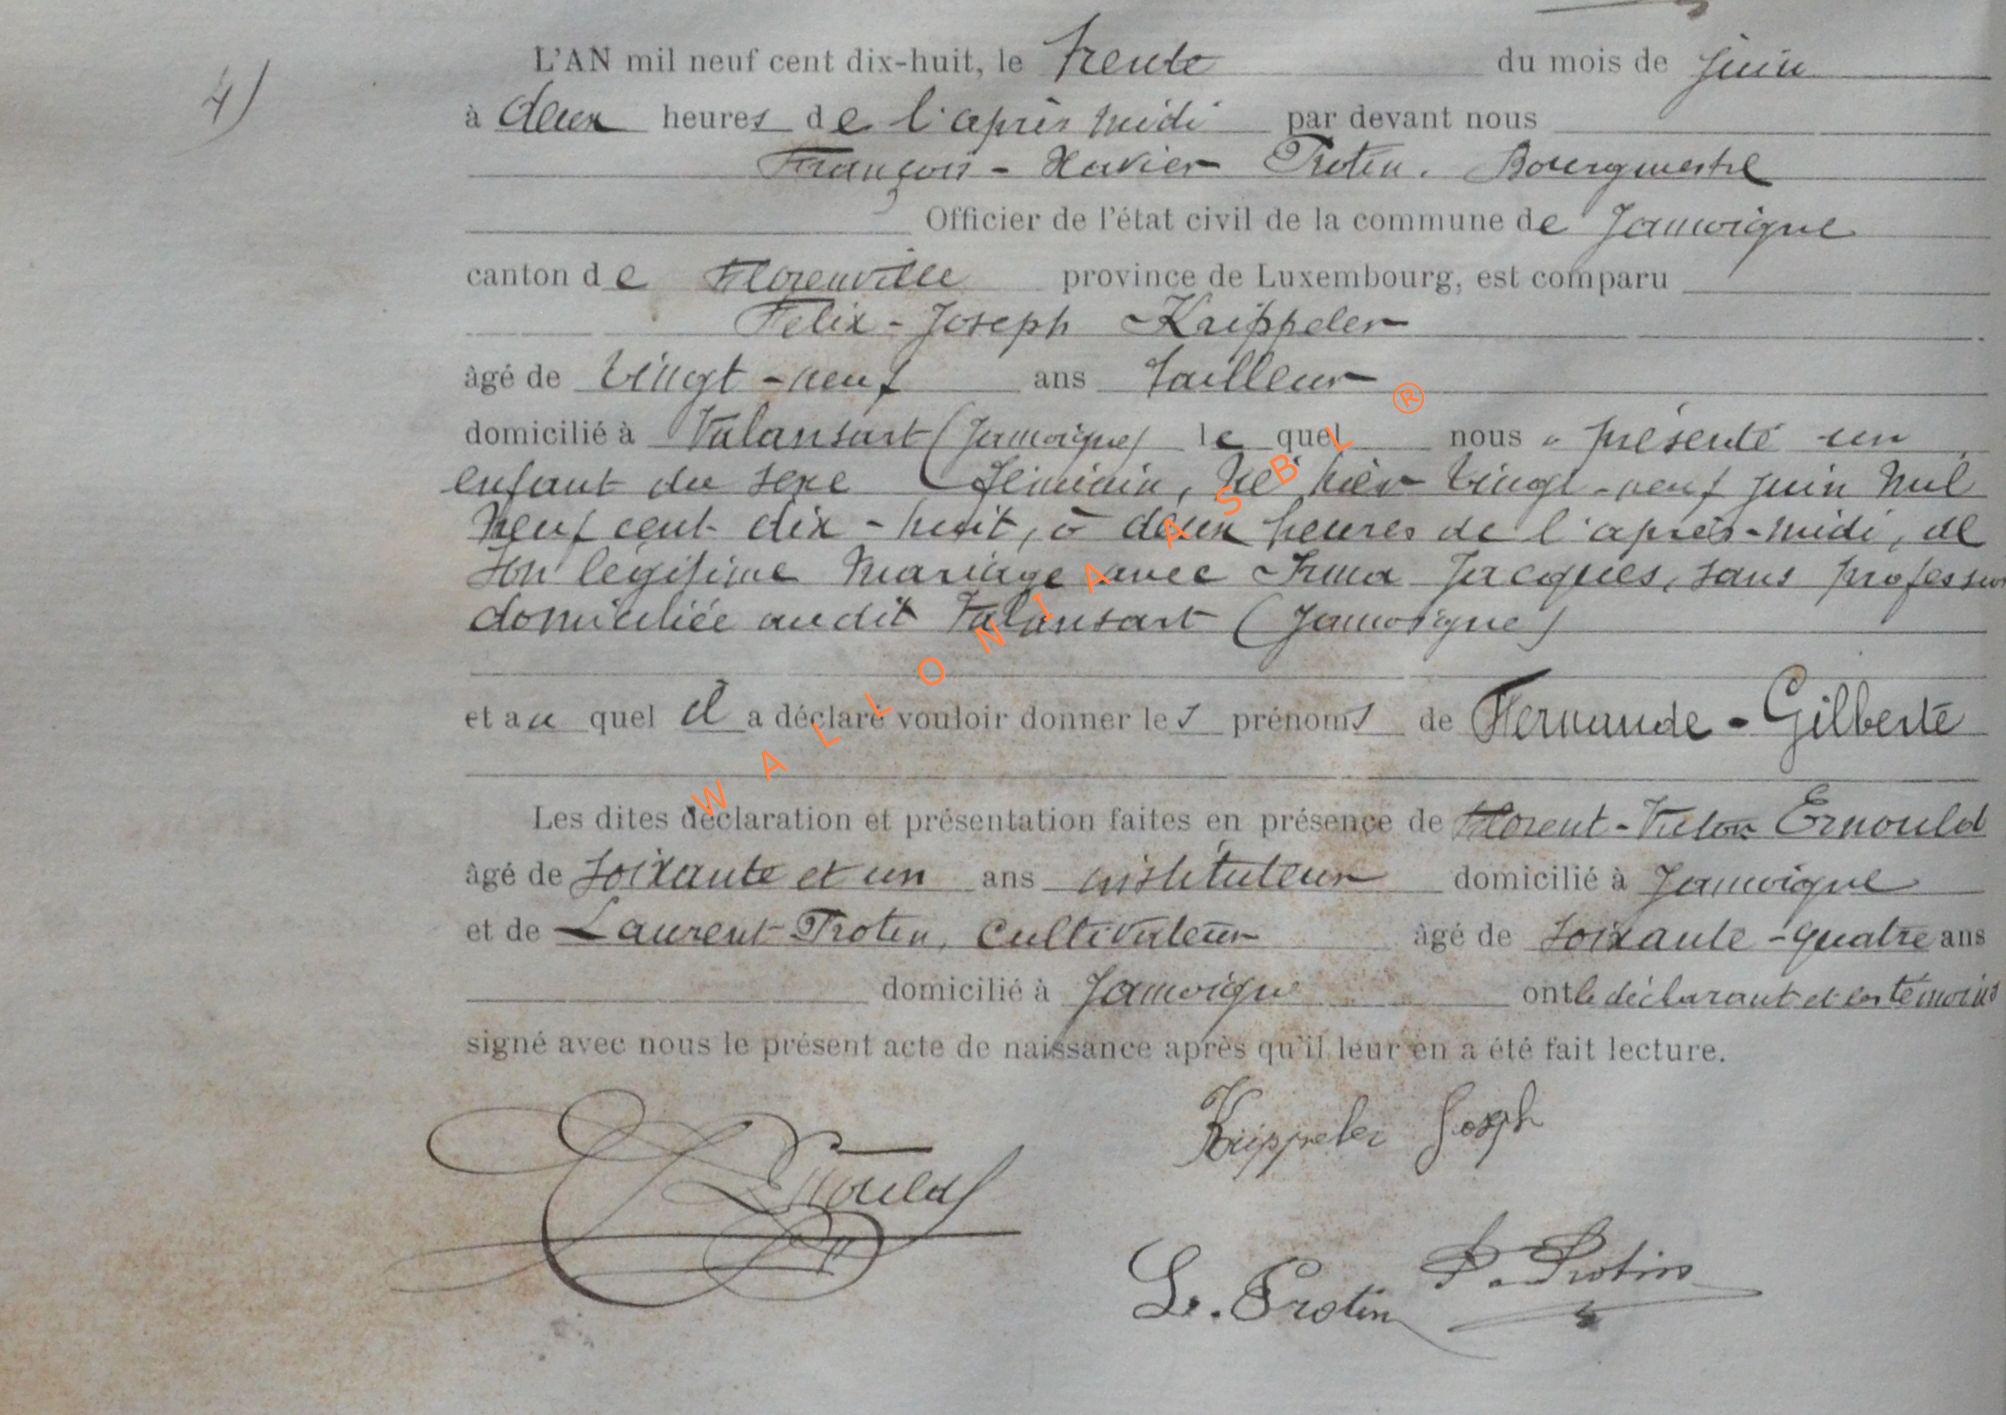 4)
L'AN mil neuf cent dix-huit, le trente du mois de juin
à deux heures de l'après midi par devant nous
François-Xavier Protin, Bourgmestre
Officier de l'état civil de la commune de Jamoigne
canton de Florenville province de Luxembourg, est comparu
Felix-Joseph Krippeler
âgé de vingt-neuf ans tailleur
domicilié à Valansart (Jamoigne) le quel nous a présenté un
enfant du sexe féminin, né hier vingt-neuf juin mil
neuf cent dix-huit, à deux heures de l'après-midi, de
son légitime mariage avec Irma Jacques, sans profession
domiciliée audit Valansart (Jamoigne)
et au quel il a déclaré vouloir donner les prénoms de Fernande-Gilberte
Les dites déclaration et présentation faites en présence de Florent-Victor Ernould
âgé de soixante et un ans instituteur domicilié à Jamoigne
et de Laurent Protin, cultivateur âgé de soixante-quatre ans
domicilié à Jamoigne ont le déclarant et les témoins
signé avec nous le présent acte de naissance après qu'il leur en a été fait lecture.
Krippeler Joseph
Ernould
L. Protin
P. Protin
WALLONIA ASBL ®